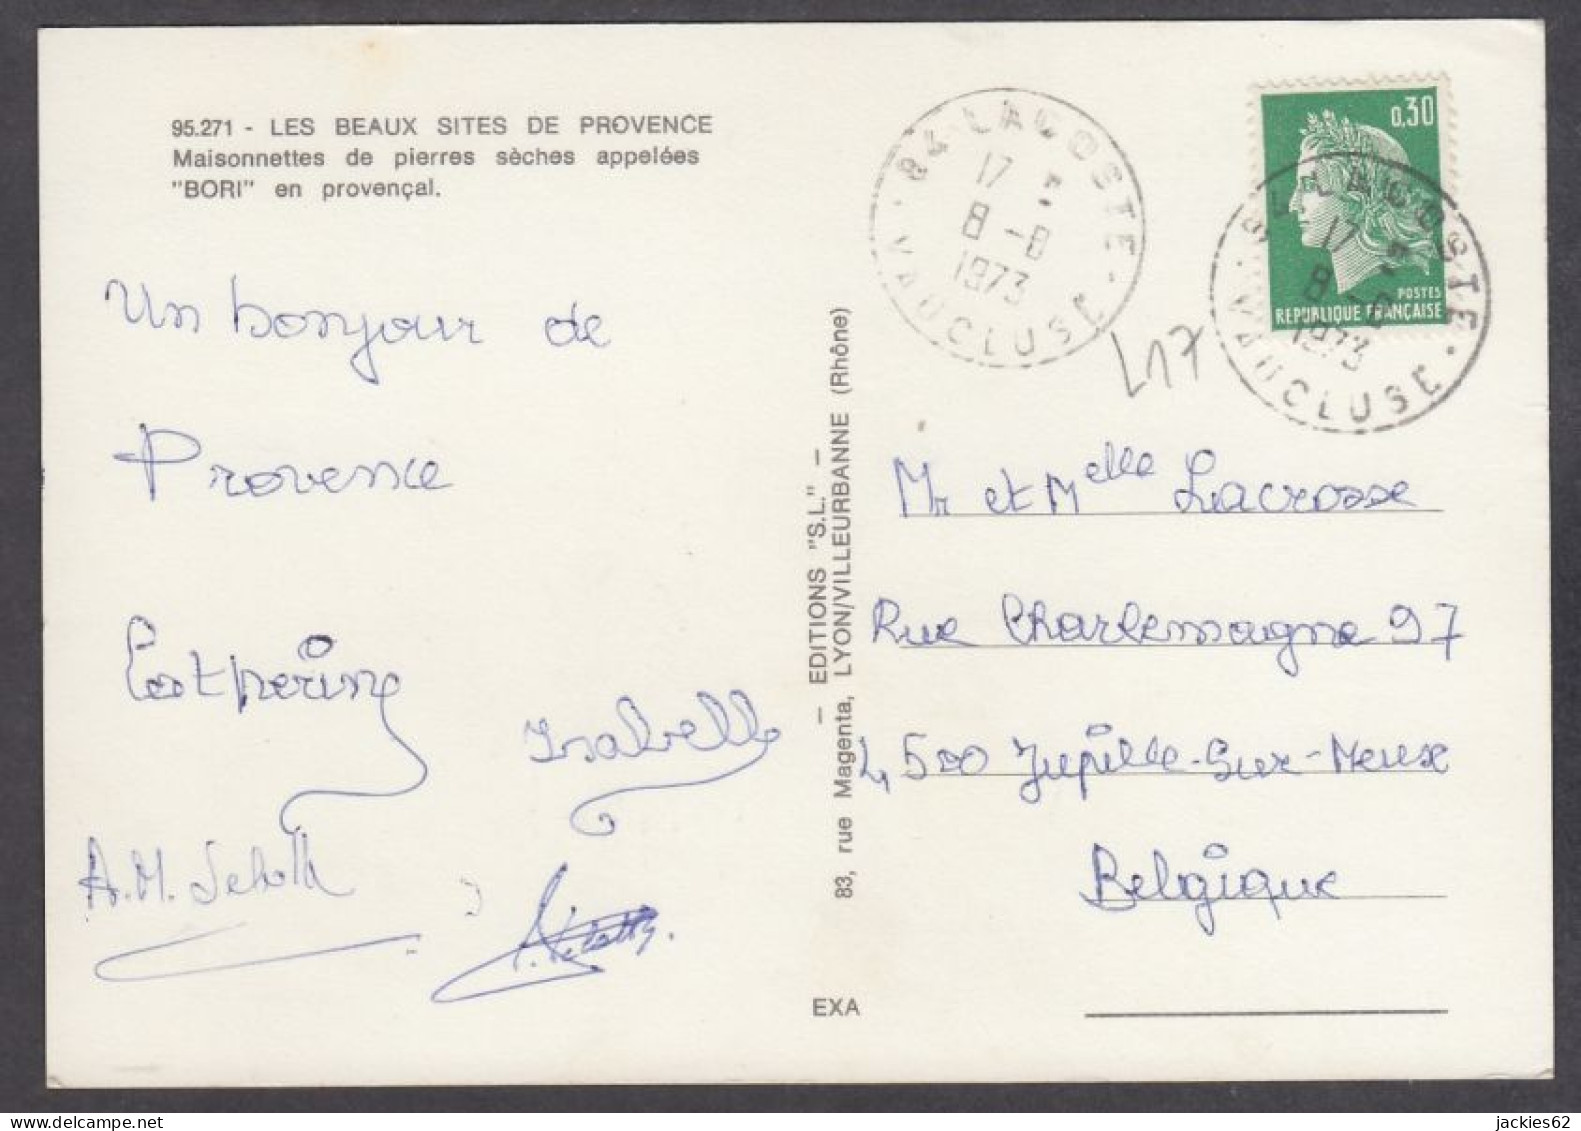 95.271 - LES BEAUX SITES DE PROVENCE
Maisonnettes de pierres sèches appelées
"BORI" en provençal.
Un bonjour de
Provence
Catherine
Isabelle
A.M.
— EDITIONS "S.L." —
83, rue Magenta, LYON/VILLEURBANNE (Rhône)
EXA
84 LACOSTE
17
8 -8
1973
VAUCLUSE
0,30
POSTES
REPUBLIQUE FRANÇAISE
84 LACOSTE
17
8 -8
1973
VAUCLUSE
417
Mr et Melle Lacrosse
Rue Charlemagne 97
4500 Jupille-Sur-Meuse
Belgique
jackies62